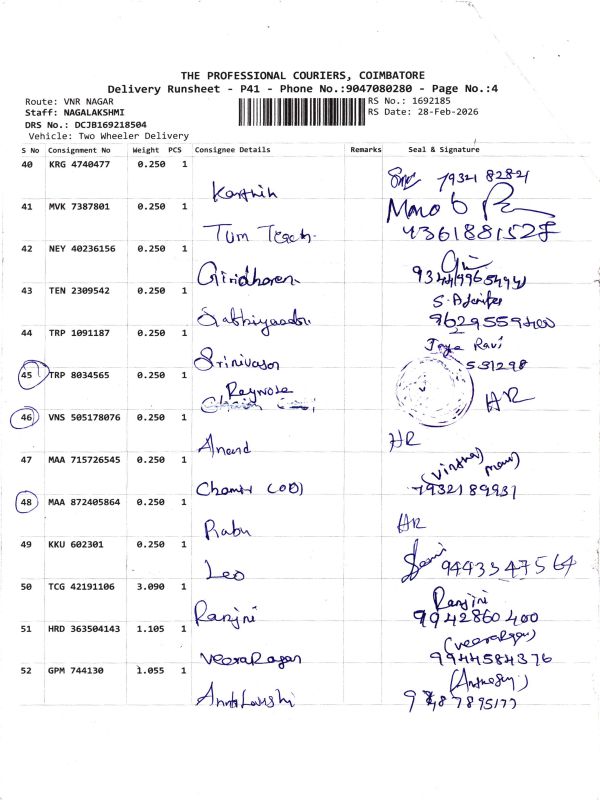 THE PROFESSIONAL COURIERS, COIMBATORE
Delivery Runsheet - P41 - Phone No.:9047080280 - Page No.:4
Route: VNR NAGAR
RS No.: 1692185
Staff: NAGALAKSHMI
RS Date: 28-Feb-2026
DRS No.: DCJB169218504
Vehicle: Two Wheeler Delivery
S No Consignment No Weight PCS Consignee Details Remarks Seal & Signature
40 KRG 4740477 0.250 1
Karthik
41 MVK 7387801 0.250 1
Tum
42 NEY 40236156 0.250 1
Giridharen
43 TEN 2309542 0.250 1
44 TRP 1091187 0.250 1
9629559400
Srinivason
Jaya Ravi
45 TRP 8034565 0.250 1
531298
HR
46 VNS 505178076 0.250 1
Anand
HR
47 MAA 715726545 0.250 1
7932189931
48 MAA 872405864 0.250 1
Prabu
HR
49 KKU 602301 0.250 1
Leo
9443347564
50 TCG 42191106 3.090 1
Ranjini
Ranjini
9942860400
51 HRD 363504143 1.105 1
VeeraRagan
9944584376
52 GPM 744130 1.055 1